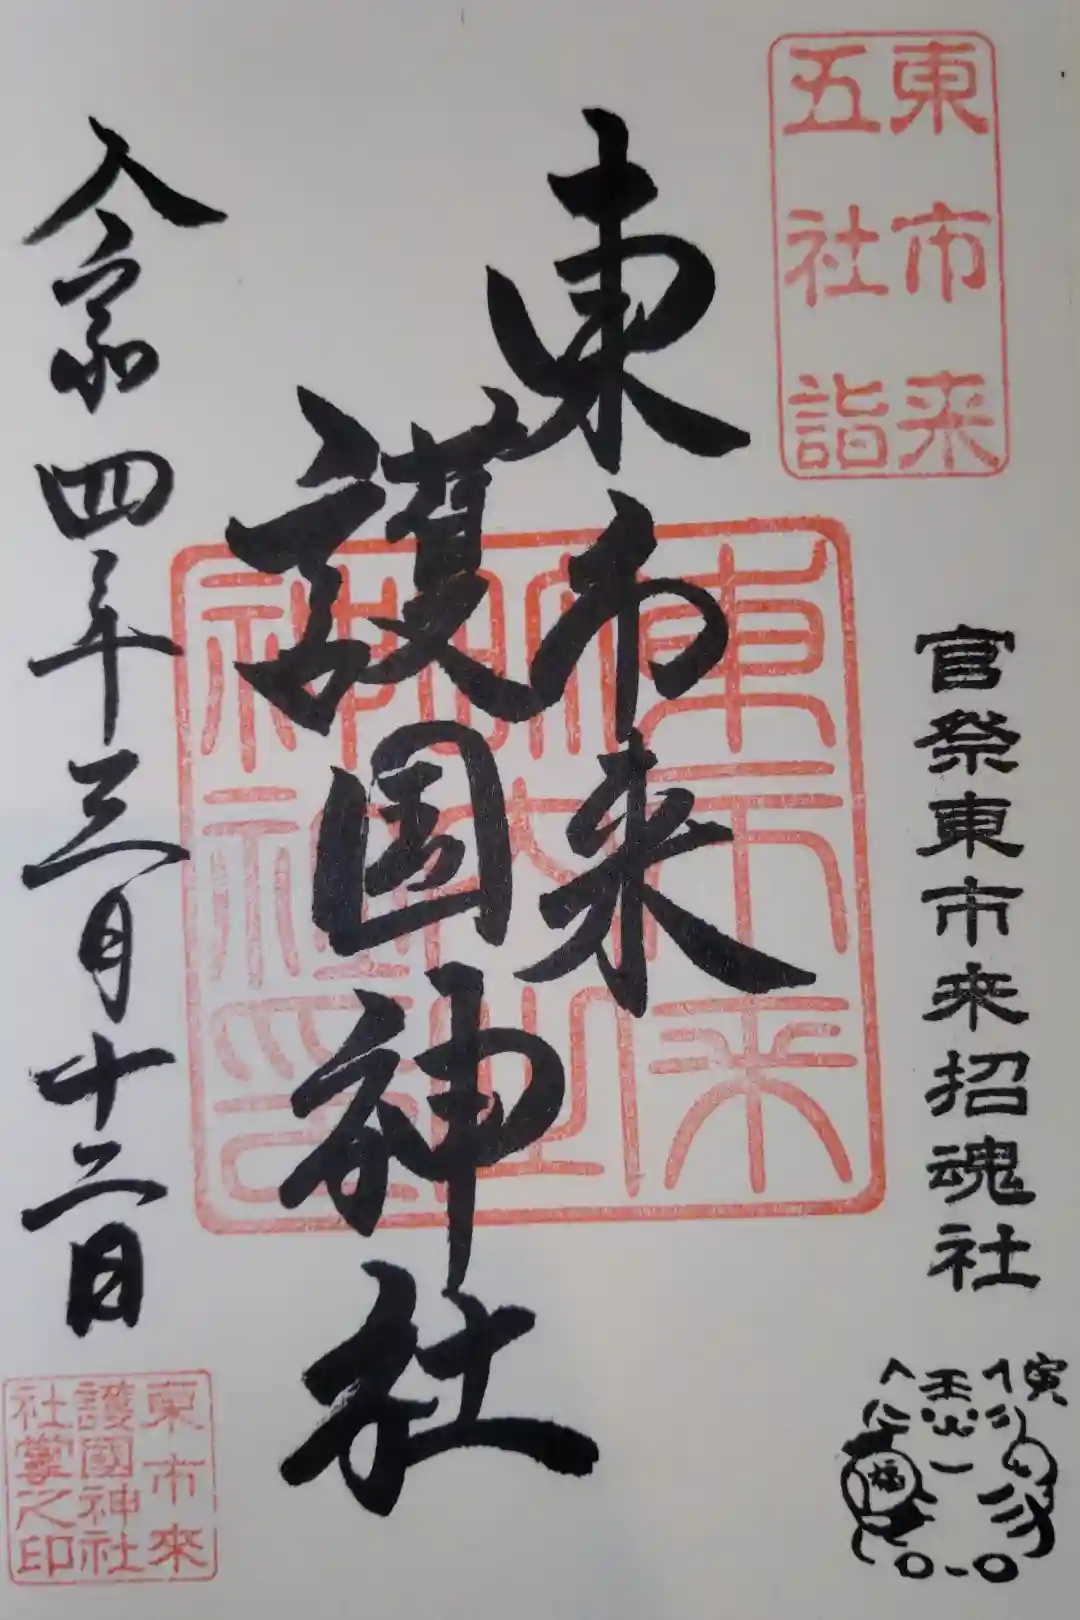 東市来
五社詣
官祭東市来招魂社
寅
福
東市来
護国神社
東市来
神社
令和四年三月十二日
東市来
護國神社
社掌之印